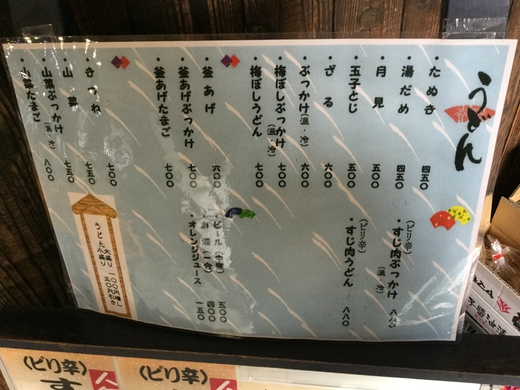 うどん
・たぬき 四五〇
・湯だめ 四五〇
・月見 五〇〇
・玉子とじ 五〇〇
・ざる 五〇〇
・ぶっかけ(温・冷) 六〇〇
・梅ぼしぶっかけ 七〇〇
・梅ぼしうどん 七〇〇
・釜あげ 六〇〇
・釜あげぶっかけ 七〇〇
・釜あげたまご 七〇〇
・きつね 七〇〇
・山菜 七五〇
・山菜ぶっかけ(温・冷) 七五〇
・山菜たまご 八〇〇
(ピリ辛)
・すじ肉ぶっかけ(温・冷) 八八〇
(ピリ辛)
・すじ肉うどん 八八〇
・ビール(中瓶) 五〇〇
・お酒(一合) 四〇〇
・オレンジジュース 一五〇
うどん 大盛り 一〇〇円増し
小盛り 五〇円引き
(ピリ辛)
す
(ピリ辛)